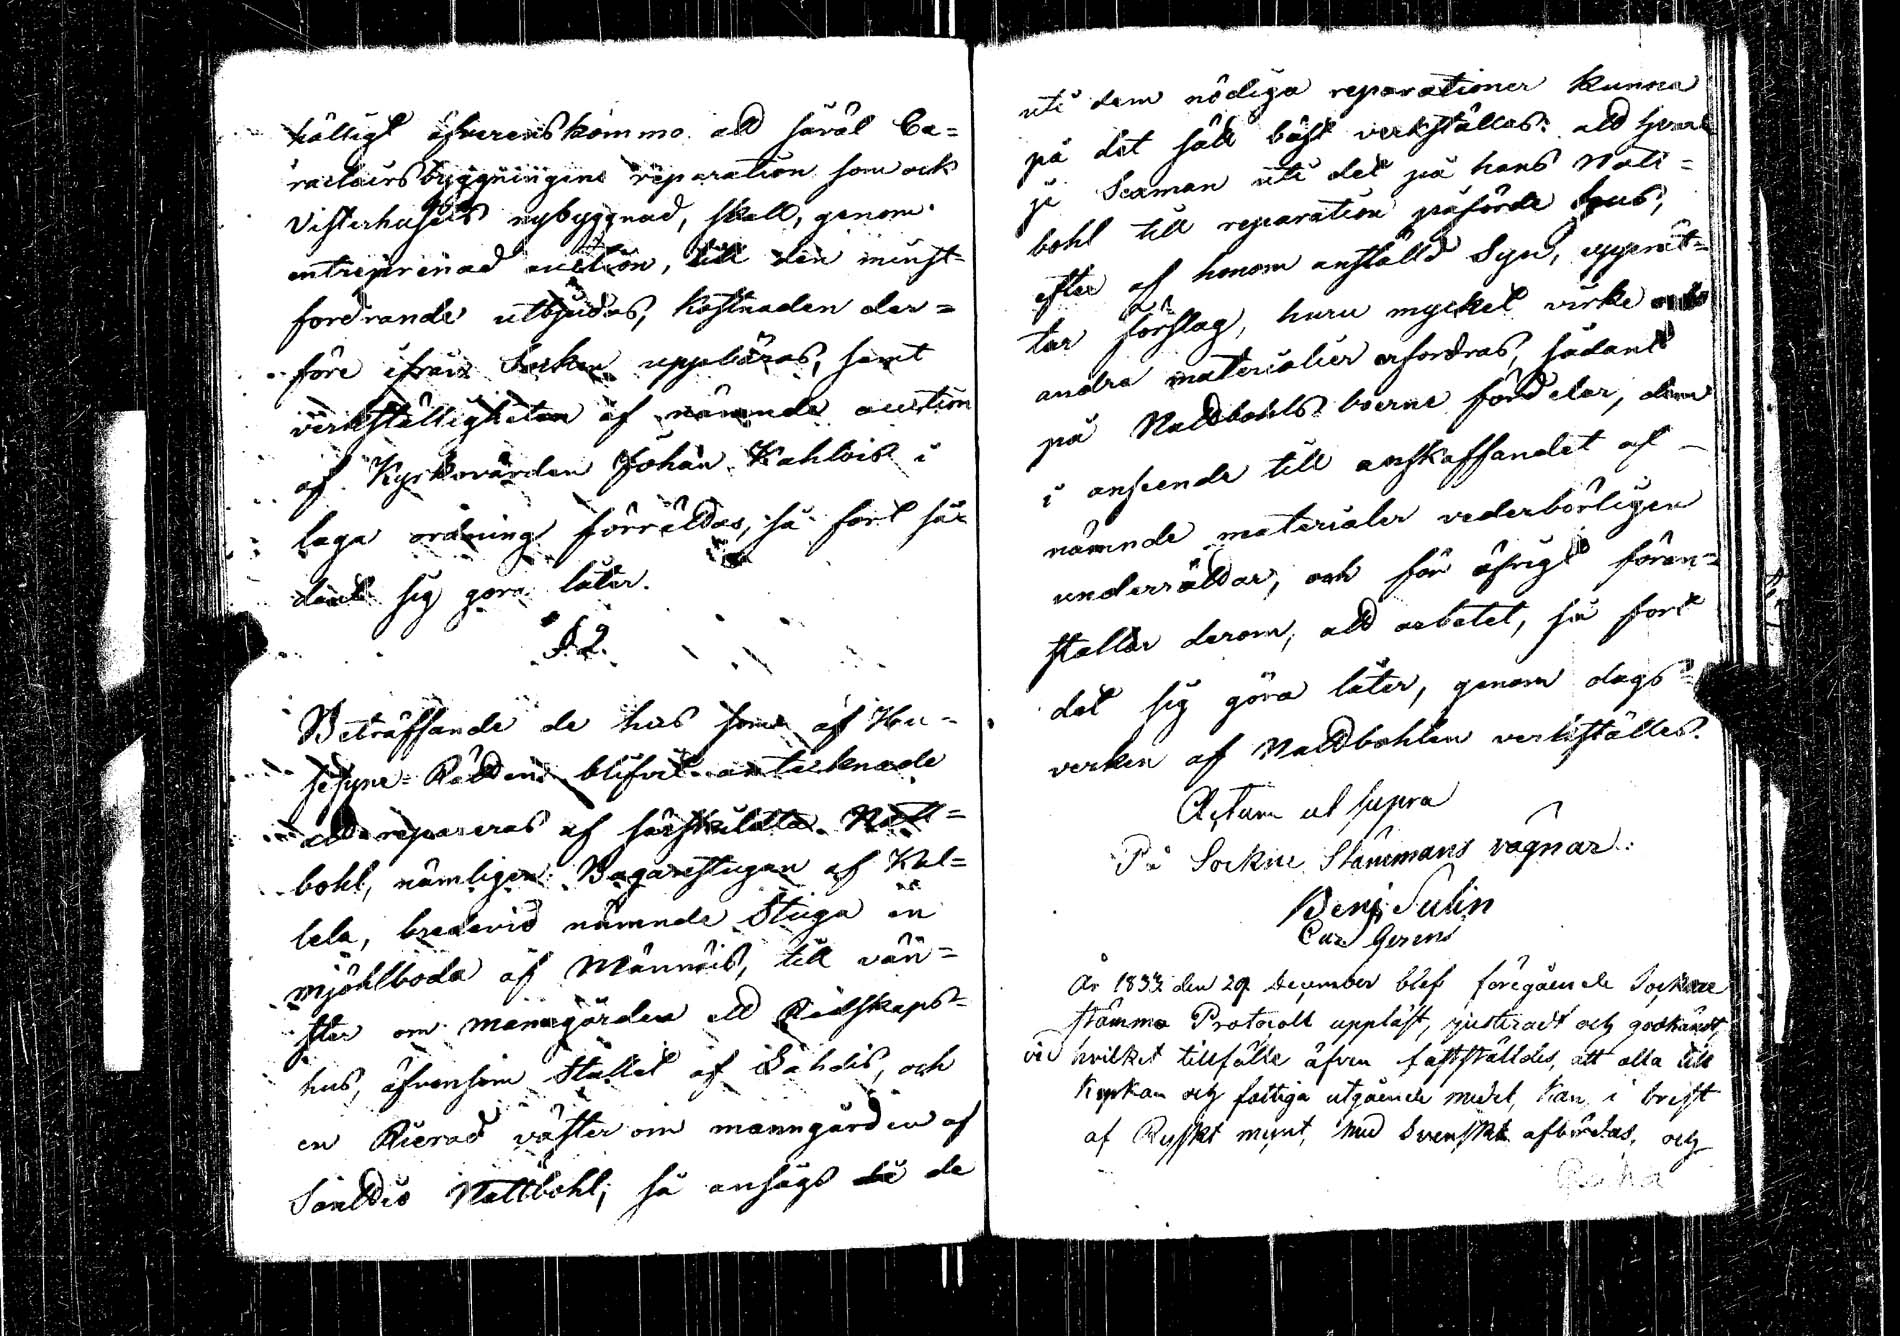 hälligt öfverenskommo att såväl Ca=
racteirsbyggningens reparation som ock
Visterhusets nybyggnad, skall, genom
entreprenad auction, till den minst=
fordrande utbjudas, kostnaden der=
före ifrån Socken uppbäras, samt
verkställigheten af nämnde auction
af Kyrkovärden Johan Kahlois i
laga ordning förrättas, så fort så=
dant sig göra låter.
§ 2.
Beträffande de hus som af Hu=
sesyns=Rätten blifvit antecknade
att repareras af särskildta Natt=
bohl, nämligen Bagarestugan af Kal=
lela, bredevid nämnde Stuga en
mjöhlboda af Männäis, till vän=
ster om manngården ett Redskaps=
hus, äfvensom Stallet af Sahdis, och
en Rierad väster om manngården af
Nattbohl; så ansågs de
uti dem nödiga reparationer kunna
på det sätt bäst verkställas: att hvar
je Sexman uti det på hans Natt=
bohl till reparation påförde hus,
efter af honom anställd Syn, upprät=
tar förslag, huru mycket virke och
andra materialier erfordras, sådant
på Nattbohls boerne fördelar, dem
i anseende till anskaffandet af
nämnde materialier vederbörligen
underrättar, och för öfrigt föran=
staltar derom, att arbetet, så fort
det sig göra låter, genom dags=
verken af Nattbohlen verkställes.
Actum ut supra
På Sockne Stämmans vägnar:
Benj. Sulin
Cur Gerens
År 1833 den 29 December blef föregående Sockne
stämmo Protocoll uppläst, justeradt och godkändt,
vid hvilket tillfälle äfven fastställdes, att alla till
Kyrkan och fattiga utgående medel, kan i brist
af Ryskt mynt, med Svenskt afbördas, och